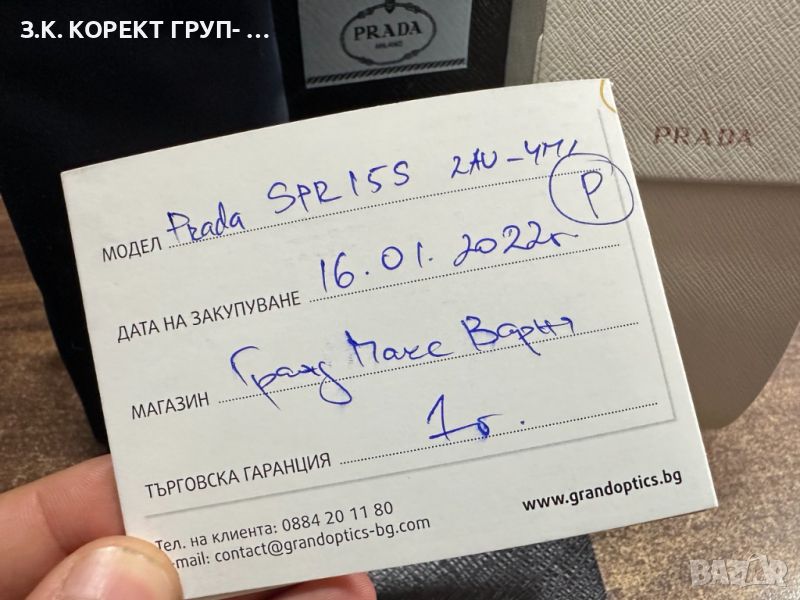 З.К. КОРЕКТ ГРУП- ...
PRADA
MILANO
PRADA
МОДЕЛ Prada SPR 15S 2AU-4M1
P
ДАТА НА ЗАКУПУВАНЕ 16.01.2022г.
МАГАЗИН Гранд Макс Варна
ТЪРГОВСКА ГАРАНЦИЯ 1г.
Тел. на клиента: 0884 20 11 80
e-mail: contact@grandoptics-bg.com
www.grandoptics.bg
BAZAR